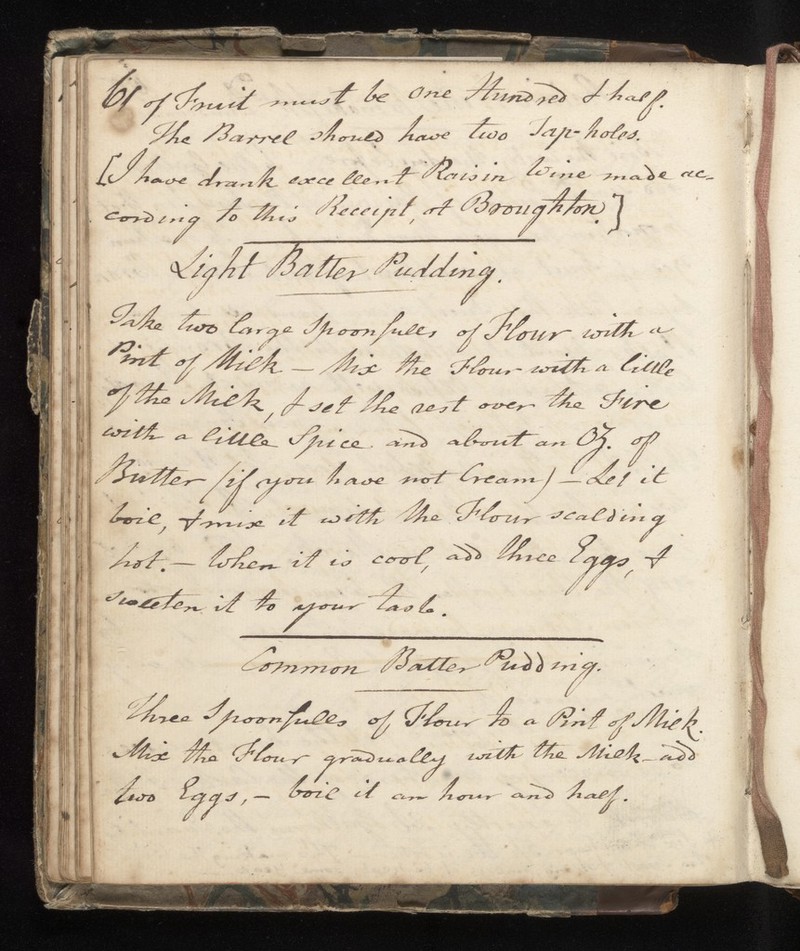 61 of Fruit must be one Hundred & half.
The Barrel should have two Tap-holes.
[I have drank excellent Raisin Wine made ac-
cording to this Receipt, at Broughton.]
Light Batter Pudding.
Take two large Spoonfulls of Flour with a
Pint of Milk — Mix the Flour with a little
of the Milk, & set the rest over the Fire
with a little Spice and about an Oz. of
Butter (if you have not Cream) — Let it
boil, & mix it with the Flour scalding
hot. — When it is cool, add three Eggs, &
sweeten it to your taste.
Common Batter Pudding.
Three Spoonfulls of Flour to a Pint of Milk.
Mix the Flour gradually with the Milk — add
two Eggs, — boil it an hour and half.